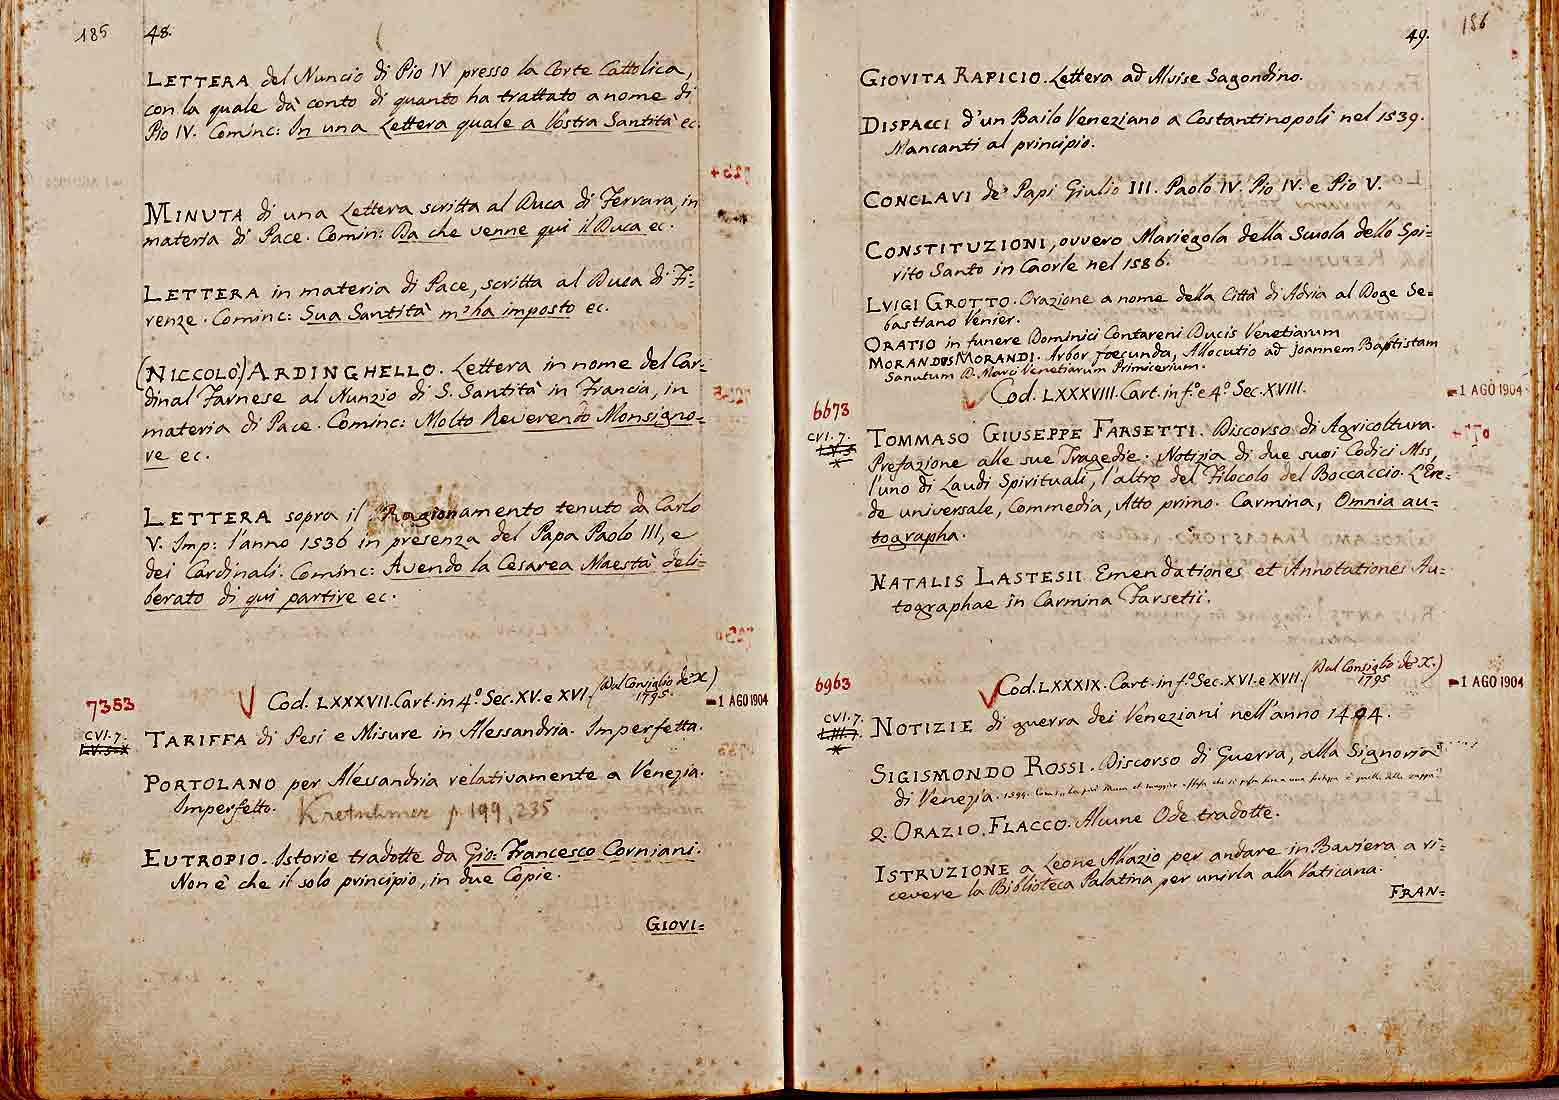 185 48.
LETTERA del Nuncio di Pio IV presso la Corte Cattolica,
con la quale dà conto di quanto ha trattato a nome di
Pio IV. Cominc: In una Lettera quale a Vostra Santità ec.
MINUTA di una Lettera scritta al Duca di Ferrara, in
materia di Pace. Comin: Da che venne qui il Duca ec.
LETTERA in materia di Pace, scritta al Duca di Fi=
renze. Cominc: Sua Santità m'ha imposto ec.
(NICCOLÒ) ARDINGHELLO. Lettera in nome del Car=
dinal Farnese al Nunzio di S. Santità in Francia, in
materia di Pace. Cominc: Molto Reverendo Monsigno=
re ec.
LETTERA sopra il Ragionamento tenuto da Carlo
V. Imp: l'anno 1536 in presenza del Papa Paolo III, e
dei Cardinali. Cominc: Avendo la Cesarea Maestà deli=
berato di qui partire ec.
7353 Cod. LXXXVII. Cart. in 4º Sec. XV. e XVI. (Dal Consiglio de' X.) 1795. 1 AGO 1904
CVI. 7.
TARIFFA di Pesi e Misure in Alessandria. Imperfetta.
PORTOLANO per Alessandria relativamente a Venezia.
Imperfetto. Kretschmer p. 199, 235
EUTROPIO. Istorie tradotte da Gio: Francesco Corniani.
Non è che il solo principio, in due Copie.
GIOVI=
49. 186
GIOVITA RAPICIO. Lettera ad Alvise Sagondino.
DISPACCI d'un Bailo Veneziano a Costantinopoli nel 1539.
Mancanti al principio.
CONCLAVI de' Papi Giulio III. Paolo IV. Pio IV. e Pio V.
CONSTITUZIONI, ovvero Mariegola della Scuola dello Spi=
rito Santo in Caorle nel 1586.
LUIGI GROTTO. Orazione a nome della Città di Adria al Doge Se=
bastiano Venier.
ORATIO in funere Dominici Contareni Ducis Venetiarum
MORANDUS MORANDI. Arbor foecunda, Allocutio ad Joannem Baptistam
Sanutum D. Marci Venetiarum Primicerium.
6673 Cod. LXXXVIII. Cart. in fº e 4º. Sec. XVIII. 1 AGO 1904
CVI. 7.
TOMMASO GIUSEPPE FARSETTI. Discorso di Agricoltura.
Prefazione alle sue Tragedie. Notizia di due suoi Codici Mss,
l'uno di Laudi Spirituali, l'altro del Filocolo del Boccaccio. L'Ere=
de universale, Commedia, Atto primo. Carmina, Omnia au=
tographa.
NATALIS LASTESII Emendationes et Annotationes Au=
tographae in Carmina Farsetii.
6963 Cod. LXXXIX. Cart. in fº. Sec. XVI. e XVII. (Dal Consiglio de' X.) 1795 1 AGO 1904
CVI. 7.
NOTIZIE di guerra dei Veneziani nell'anno 1494.
SIGISMONDO ROSSI. Discorso di Guerra, alla Signoria
di Venezia.
Q. ORAZIO FLACCO. Alcune Ode tradotte.
ISTRUZIONE a Leone Allazio per andare in Baviera a ri=
cevere la Biblioteca Palatina per unirla alla Vaticana.
FRAN=